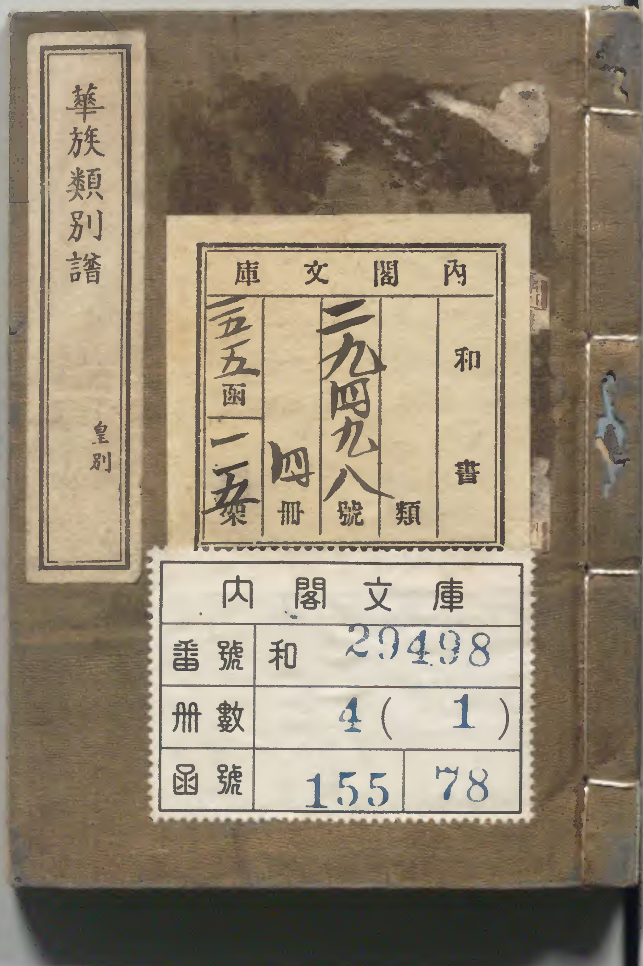 華族類別譜
皇別
內閣文庫
和書
類
二九四九八號
四冊
一五五函
架
內閣文庫
番號 和 29498
册數 4 ( 1 )
函號 155 78